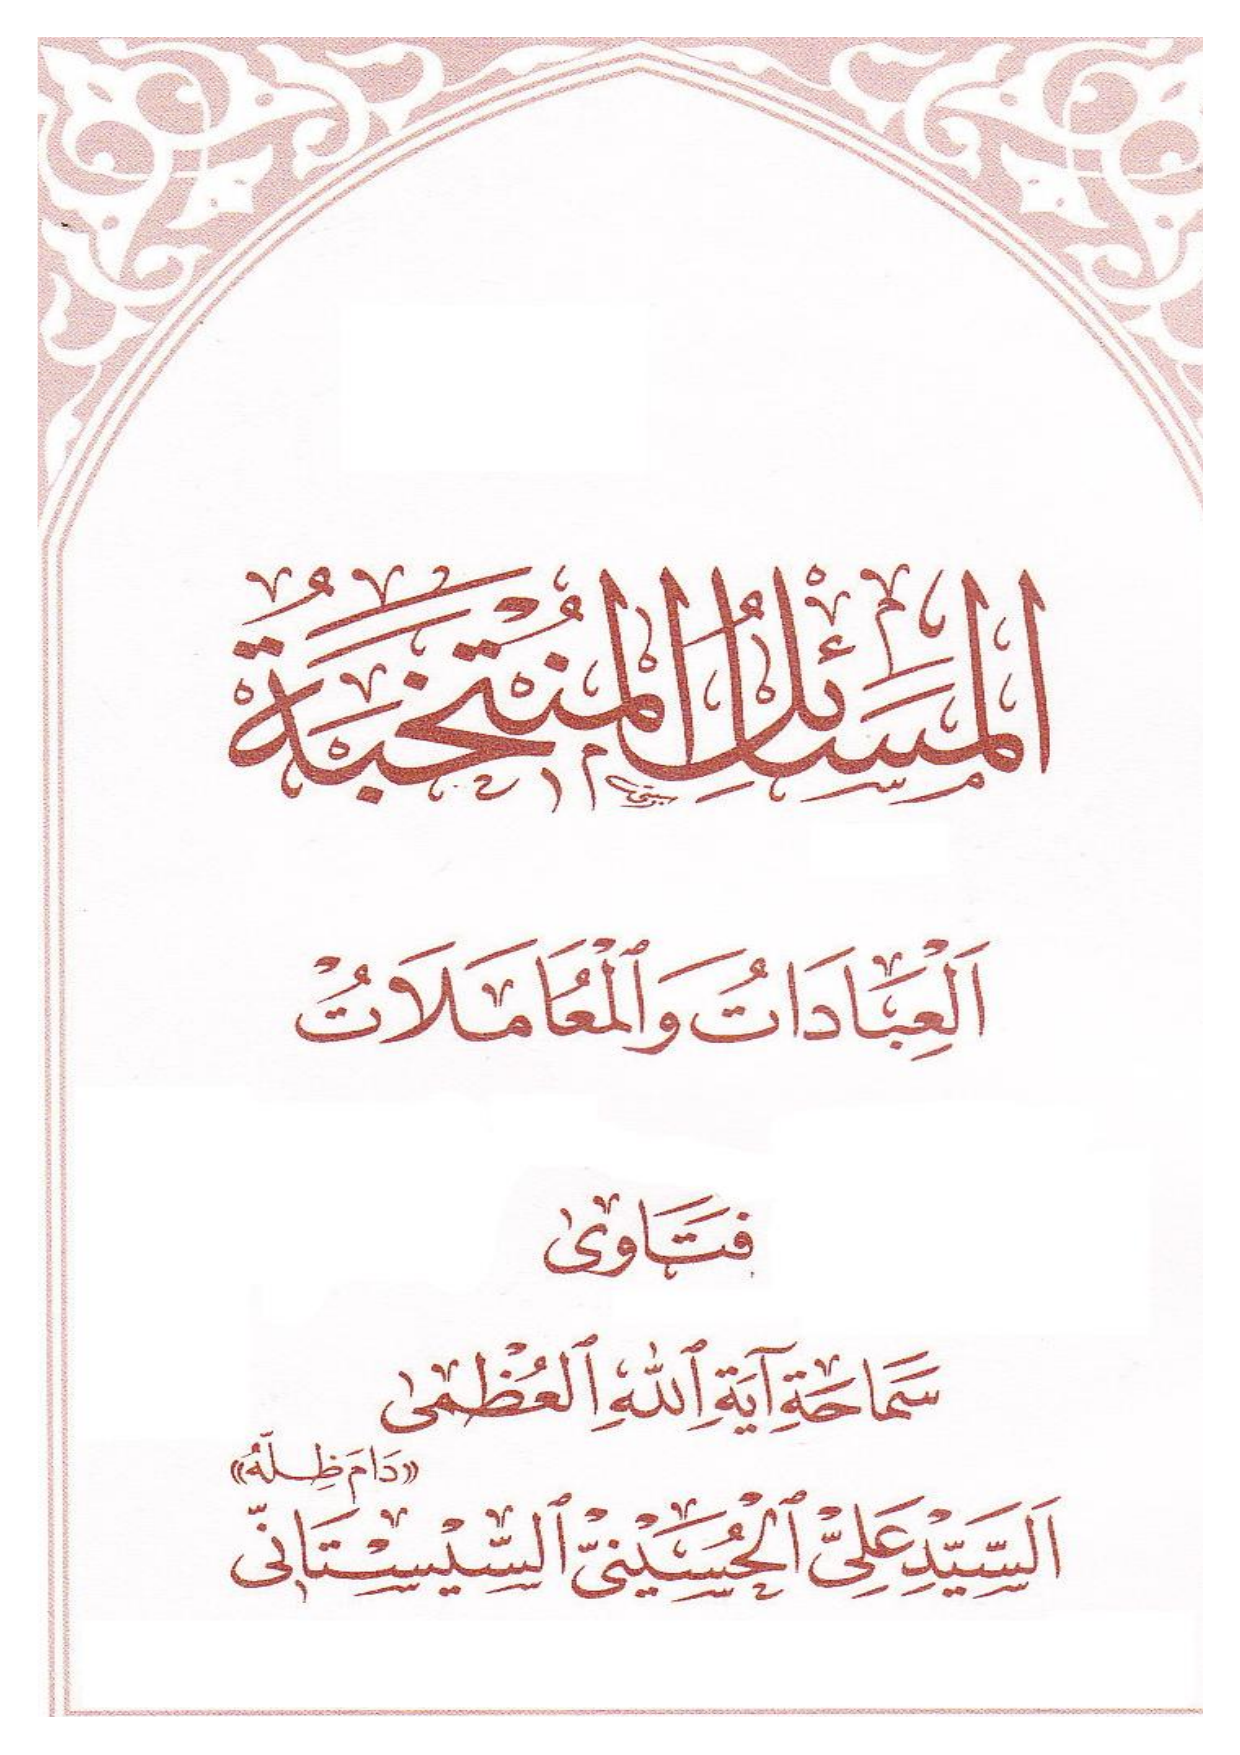 المسائل المنتخبة
اَلْعِبَادَاتُ وَالْمُعَامَلَاتُ
فتَاوى
سَمَاحَةِ آيَةِ اللهِ الْعُظْمىٰ
«دَامَ ظِلُّهُ»
اَلسَّيِّدِ عَلِيّ الْحُسَيْنيّ السِّيسْتَانيّ